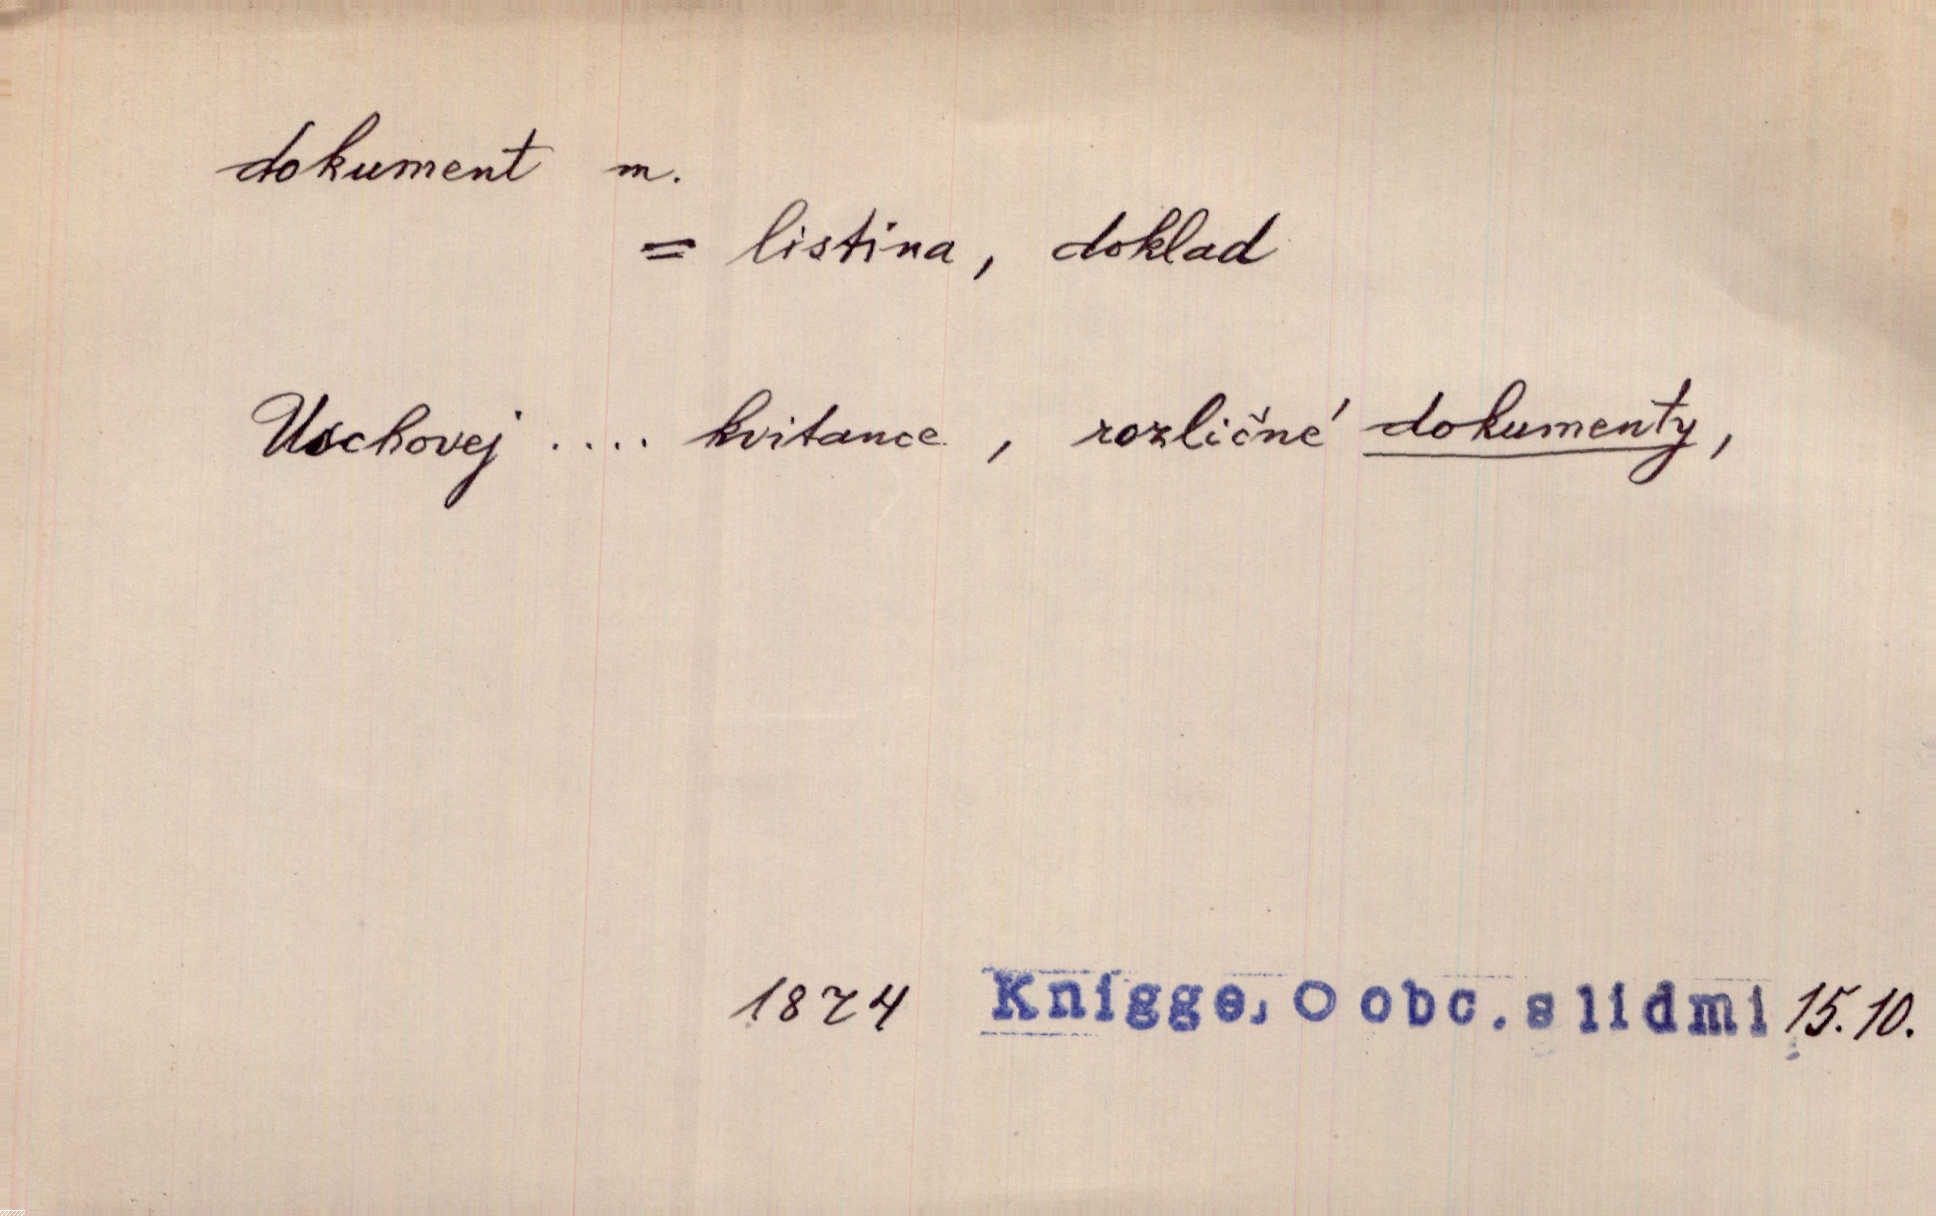 dokument m.
= listina, doklad
Uschovej .... kvitance, rozličné dokumenty,
1874 Knigge, O obc. s lidmi 15.10.